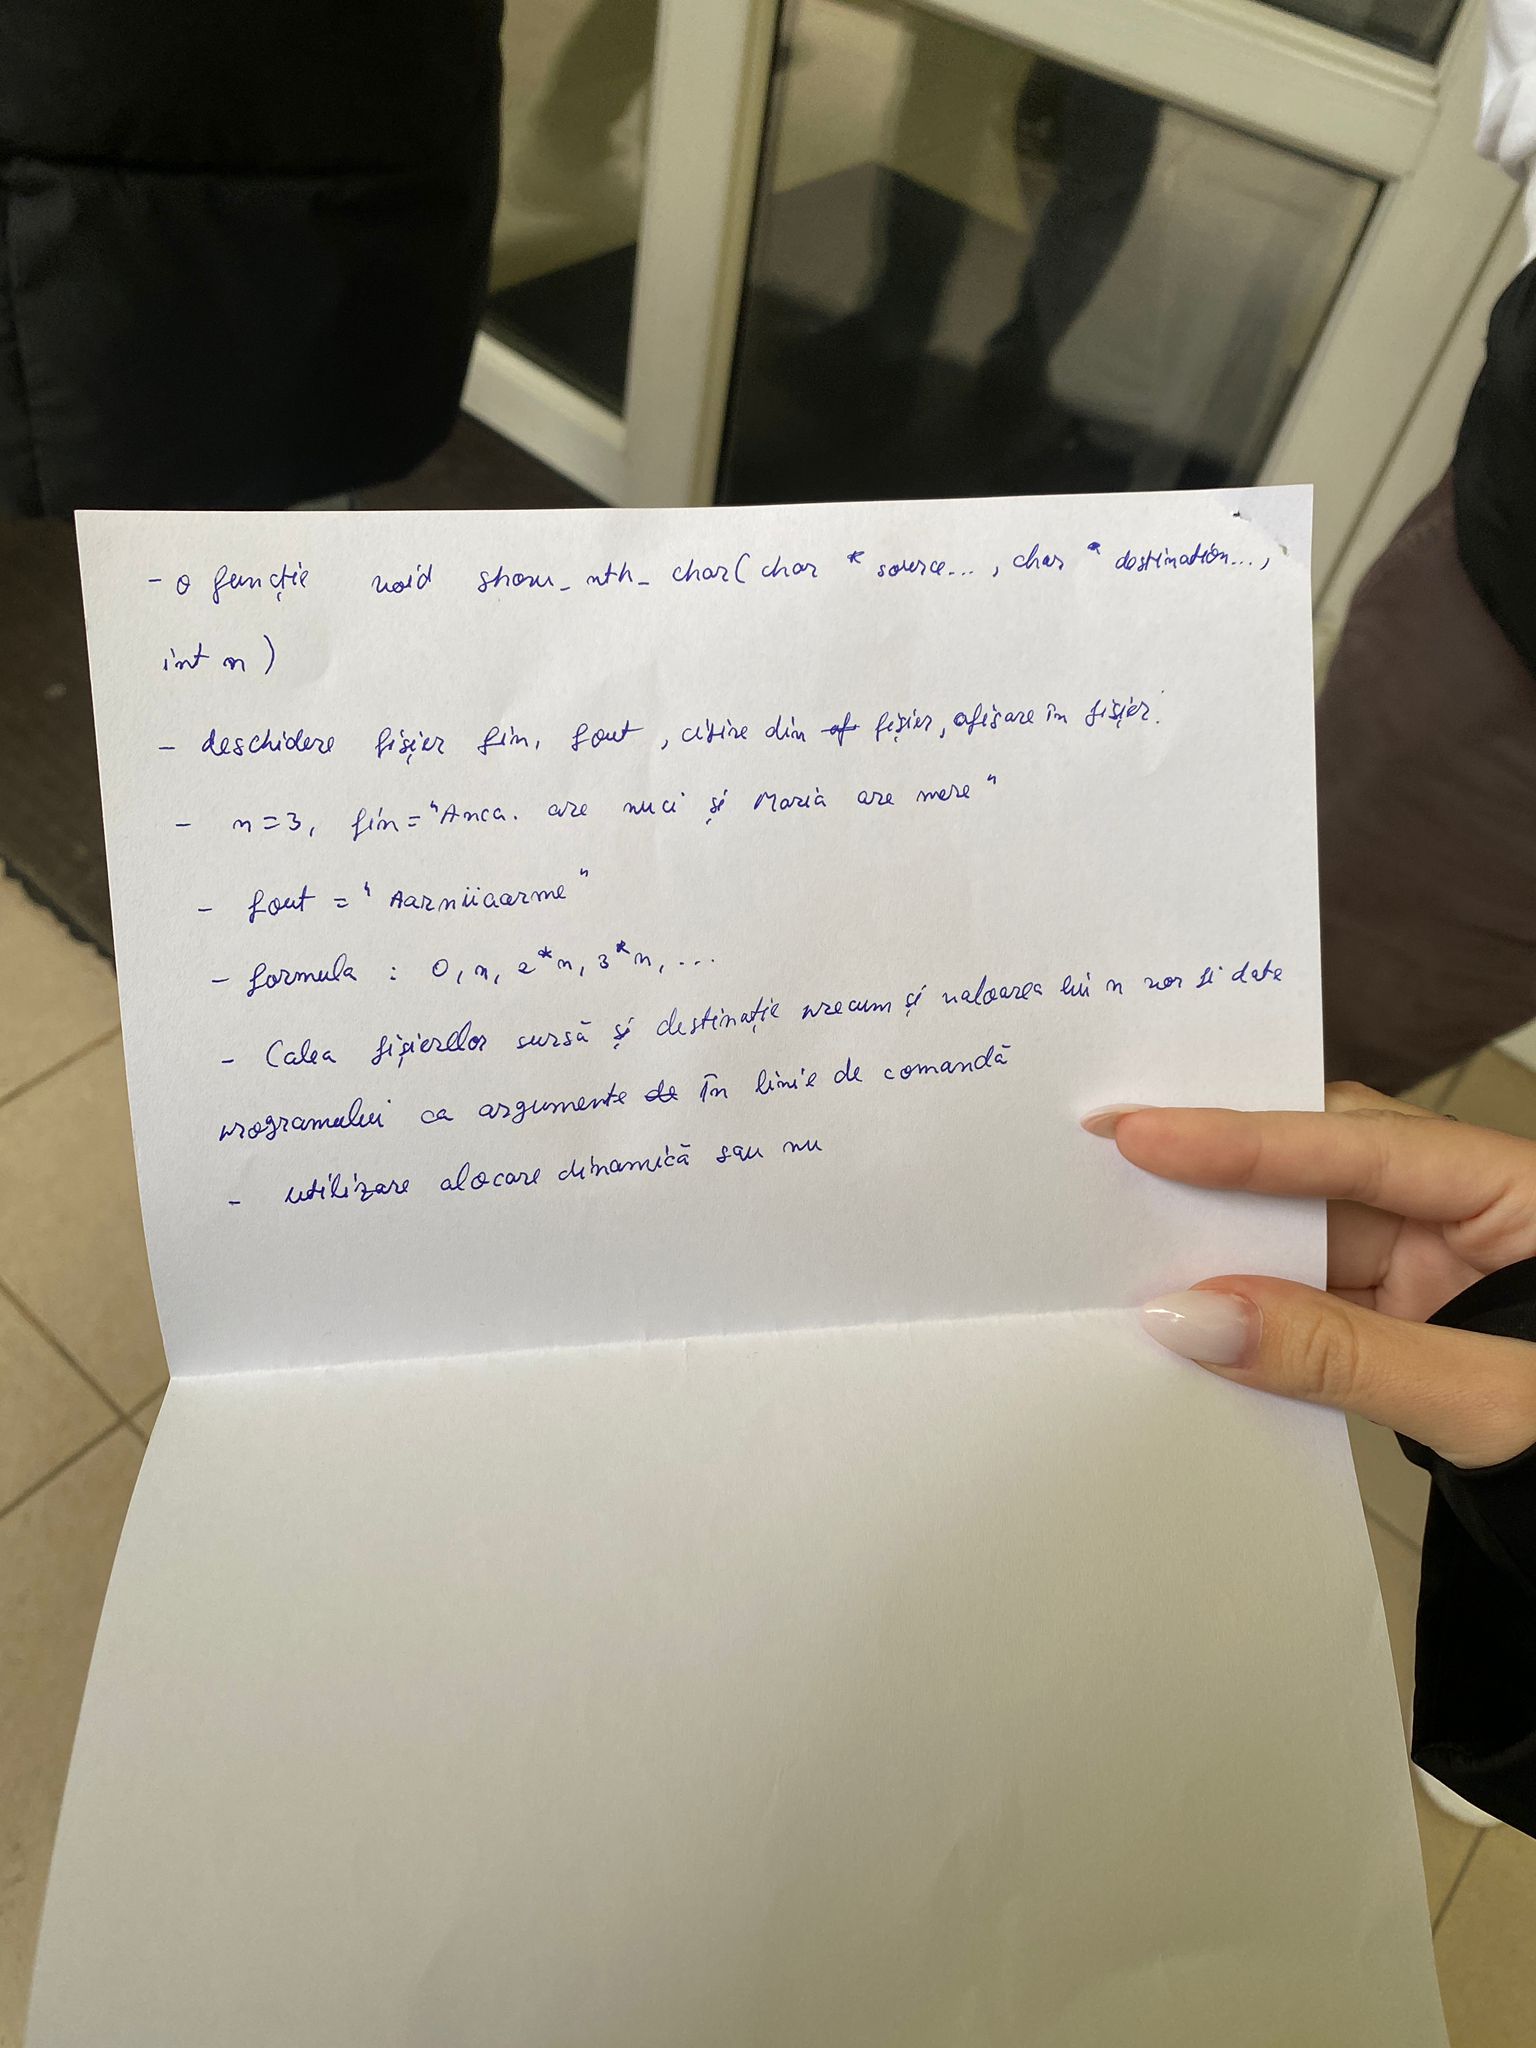 - o funcție void show_nth_char(char * source..., char * destination...,
int n)
- deschidere fișier fin, fout, citire din fișier, afișare în fișier.
- n=3, fin="Anca. are nuci și Maria are mere"
- fout = "Aarniiaarme"
- formula : 0, n, 2*n, 3*n, ...
- Calea fișierelor sursă și destinație precum și valoarea lui n vor fi date
programului ca argumente în linie de comandă
- utilizare alocare dinamică sau nu